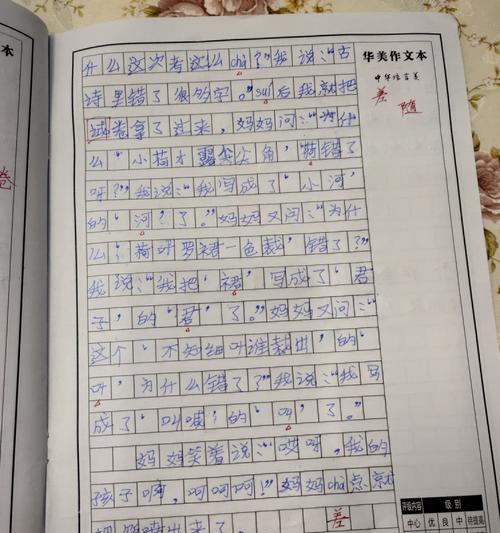 什么这次考这么chà?”我说:“古
诗里错了很多字。”suí后我就把
试卷拿了过来,妈妈问:“为什
么‘小荷才露尖尖角’荷错了
呀?”我说:“我写成了‘小河’
的‘河’了。”妈妈又问:“为什
么‘荷叶罗裙一色裁’错了?”
我说:“我把‘裙’写成了‘君
子’的‘君’了。”妈妈又问:“
这个‘不知细叶谁裁出’的‘
叶’为什么错了?”我说:“我写
成了‘叫喊’的‘叫’了。”
妈妈笑着说:“哎呀,我的
孩子啊,呵呵呵!”妈妈chà点点
出来了。
差
华美作文本
中华语言美
差 随
作文本
卷
评级内容 级别
中心 优 良 中 待提高